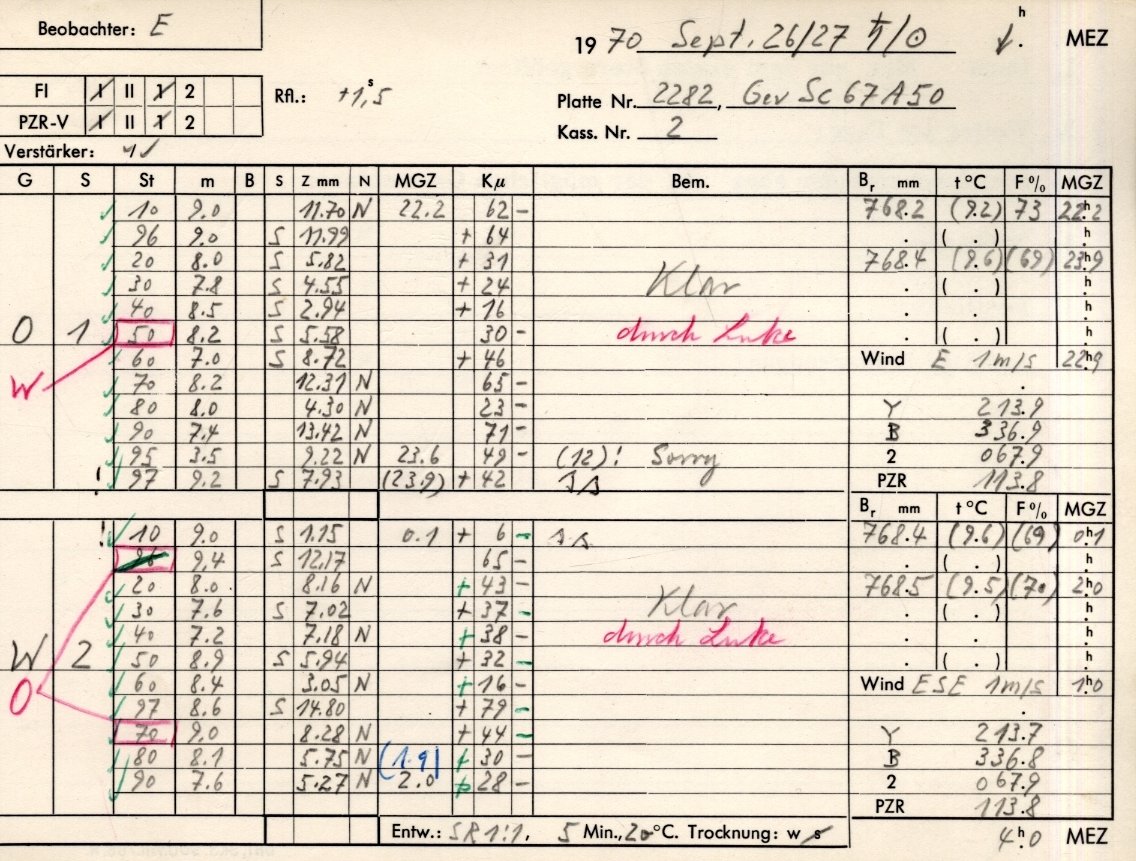 Beobachter: E
19 70 Sept. 26/27 ♄/☉ h . MEZ
FI I II 1 2 Rfl.: +1,5 s
Platte Nr. 2282, Gev Sc 67A50
PZR-V I II 1 2
Kass. Nr. 2
Verstärker:
G S St m B S Z mm N MGZ Kμ Bem. Br mm t °C F% MGZ
10 9.0 11.70 N 22.2 62 - 768.2 (9.2) 73 22h2
96 9.0 S 11.99 + 64 . ( . ) h
20 8.0 S 5.82 + 31 768.4 (9.6) (69) 23h9
30 7.8 S 4.55 + 24 Klar . ( . ) h
40 8.5 S 2.94 + 16 . h
O 1 50 8.2 S 5.58 30 - durch Luke . ( . ) h
60 7.0 S 8.72 + 46 Wind E 1m/s 22h9
W 70 8.2 12.31 N 65 - .
80 8.0 4.30 N 23 - Y 213.9
90 7.4 13.42 N 71 - B 336.9
95 3.5 9.22 N 23.6 49 - (12)! Sorry 2 067.9
! 97 9.2 S 7.93 (23.9) + 42 ss PZR 113.8
Br mm t °C F% MGZ
! 10 9.0 S 1.15 0.1 + 6 - ss 768.4 (9.6) (69) 0h1
96 9.4 S 12.17 65 - . ( . ) h
20 8.0 8.16 N + 43 - 768.5 (9.5) (70) 2h0
30 7.6 S 7.02 + 37 - Klar . ( . ) h
40 7.2 7.18 N + 38 - durch Luke . h
W 2 50 8.9 S 5.94 + 32 - . ( . ) h
60 8.4 3.05 N + 16 - Wind ESE 1m/s 1h0
O 97 8.6 S 14.80 + 79 - .
70 9.0 8.28 N + 44 - Y 213.7
80 8.1 5.75 N (1.9) + 30 - B 336.8
90 7.6 5.27 N 2.0 + 28 - 2 067.9
PZR 113.8
Entw.: SR 1:1, 5 Min., 20 °C. Trocknung: w s 4h0 MEZ